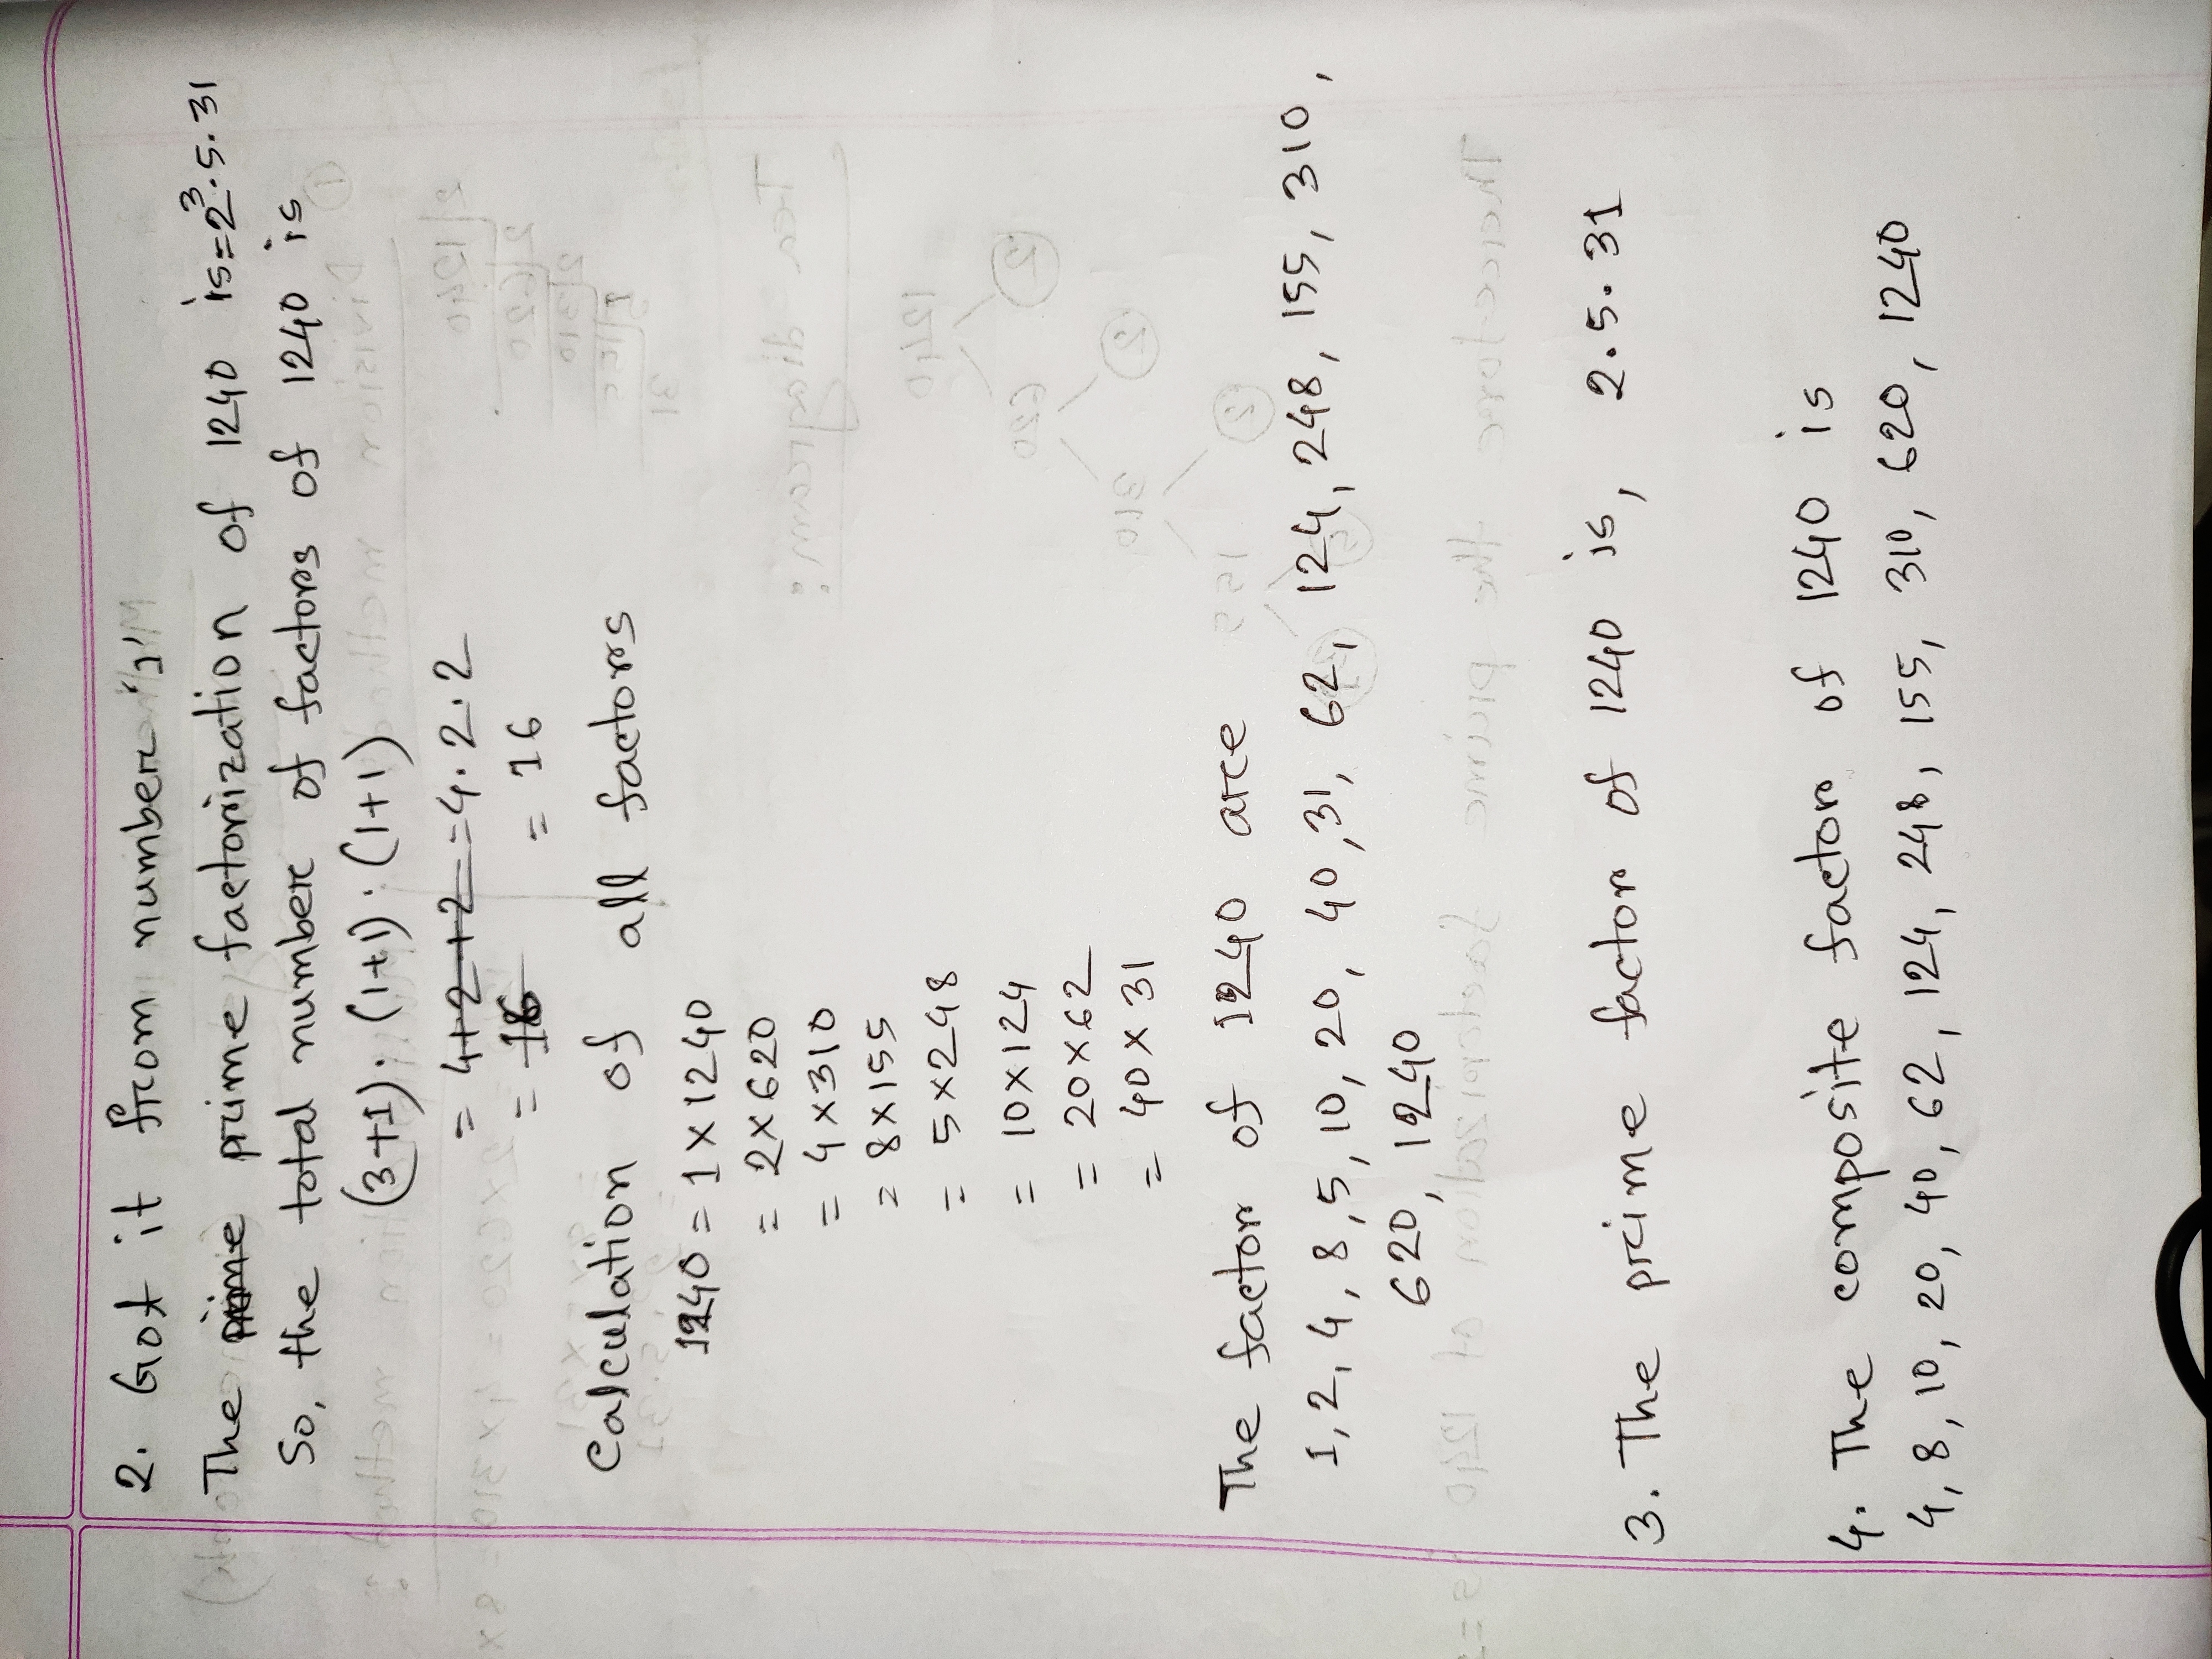 2. Got it from number '1'
The prime prime factorization of 1240 is=2³.5.31
So, the total number of factors of 1240 is
(3+1). (1+1). (1+1)
= 4+2+2 =4.2.2
= 16 = 16
Calculation of all factors
1240 = 1×1240
= 2×620
= 4×310
= 8×155
= 5×248
= 10×124
= 20×62
= 40×31
The factor of 1240 are
1, 2, 4, 8, 5, 10, 20, 40, 31, 62, 124, 248, 155, 310,
620, 1240
3. The prime factor of 1240 is, 2.5.31
4. The composite factor of 1240 is
4, 8, 10, 20, 40, 62, 124, 248, 155, 310, 620, 1240